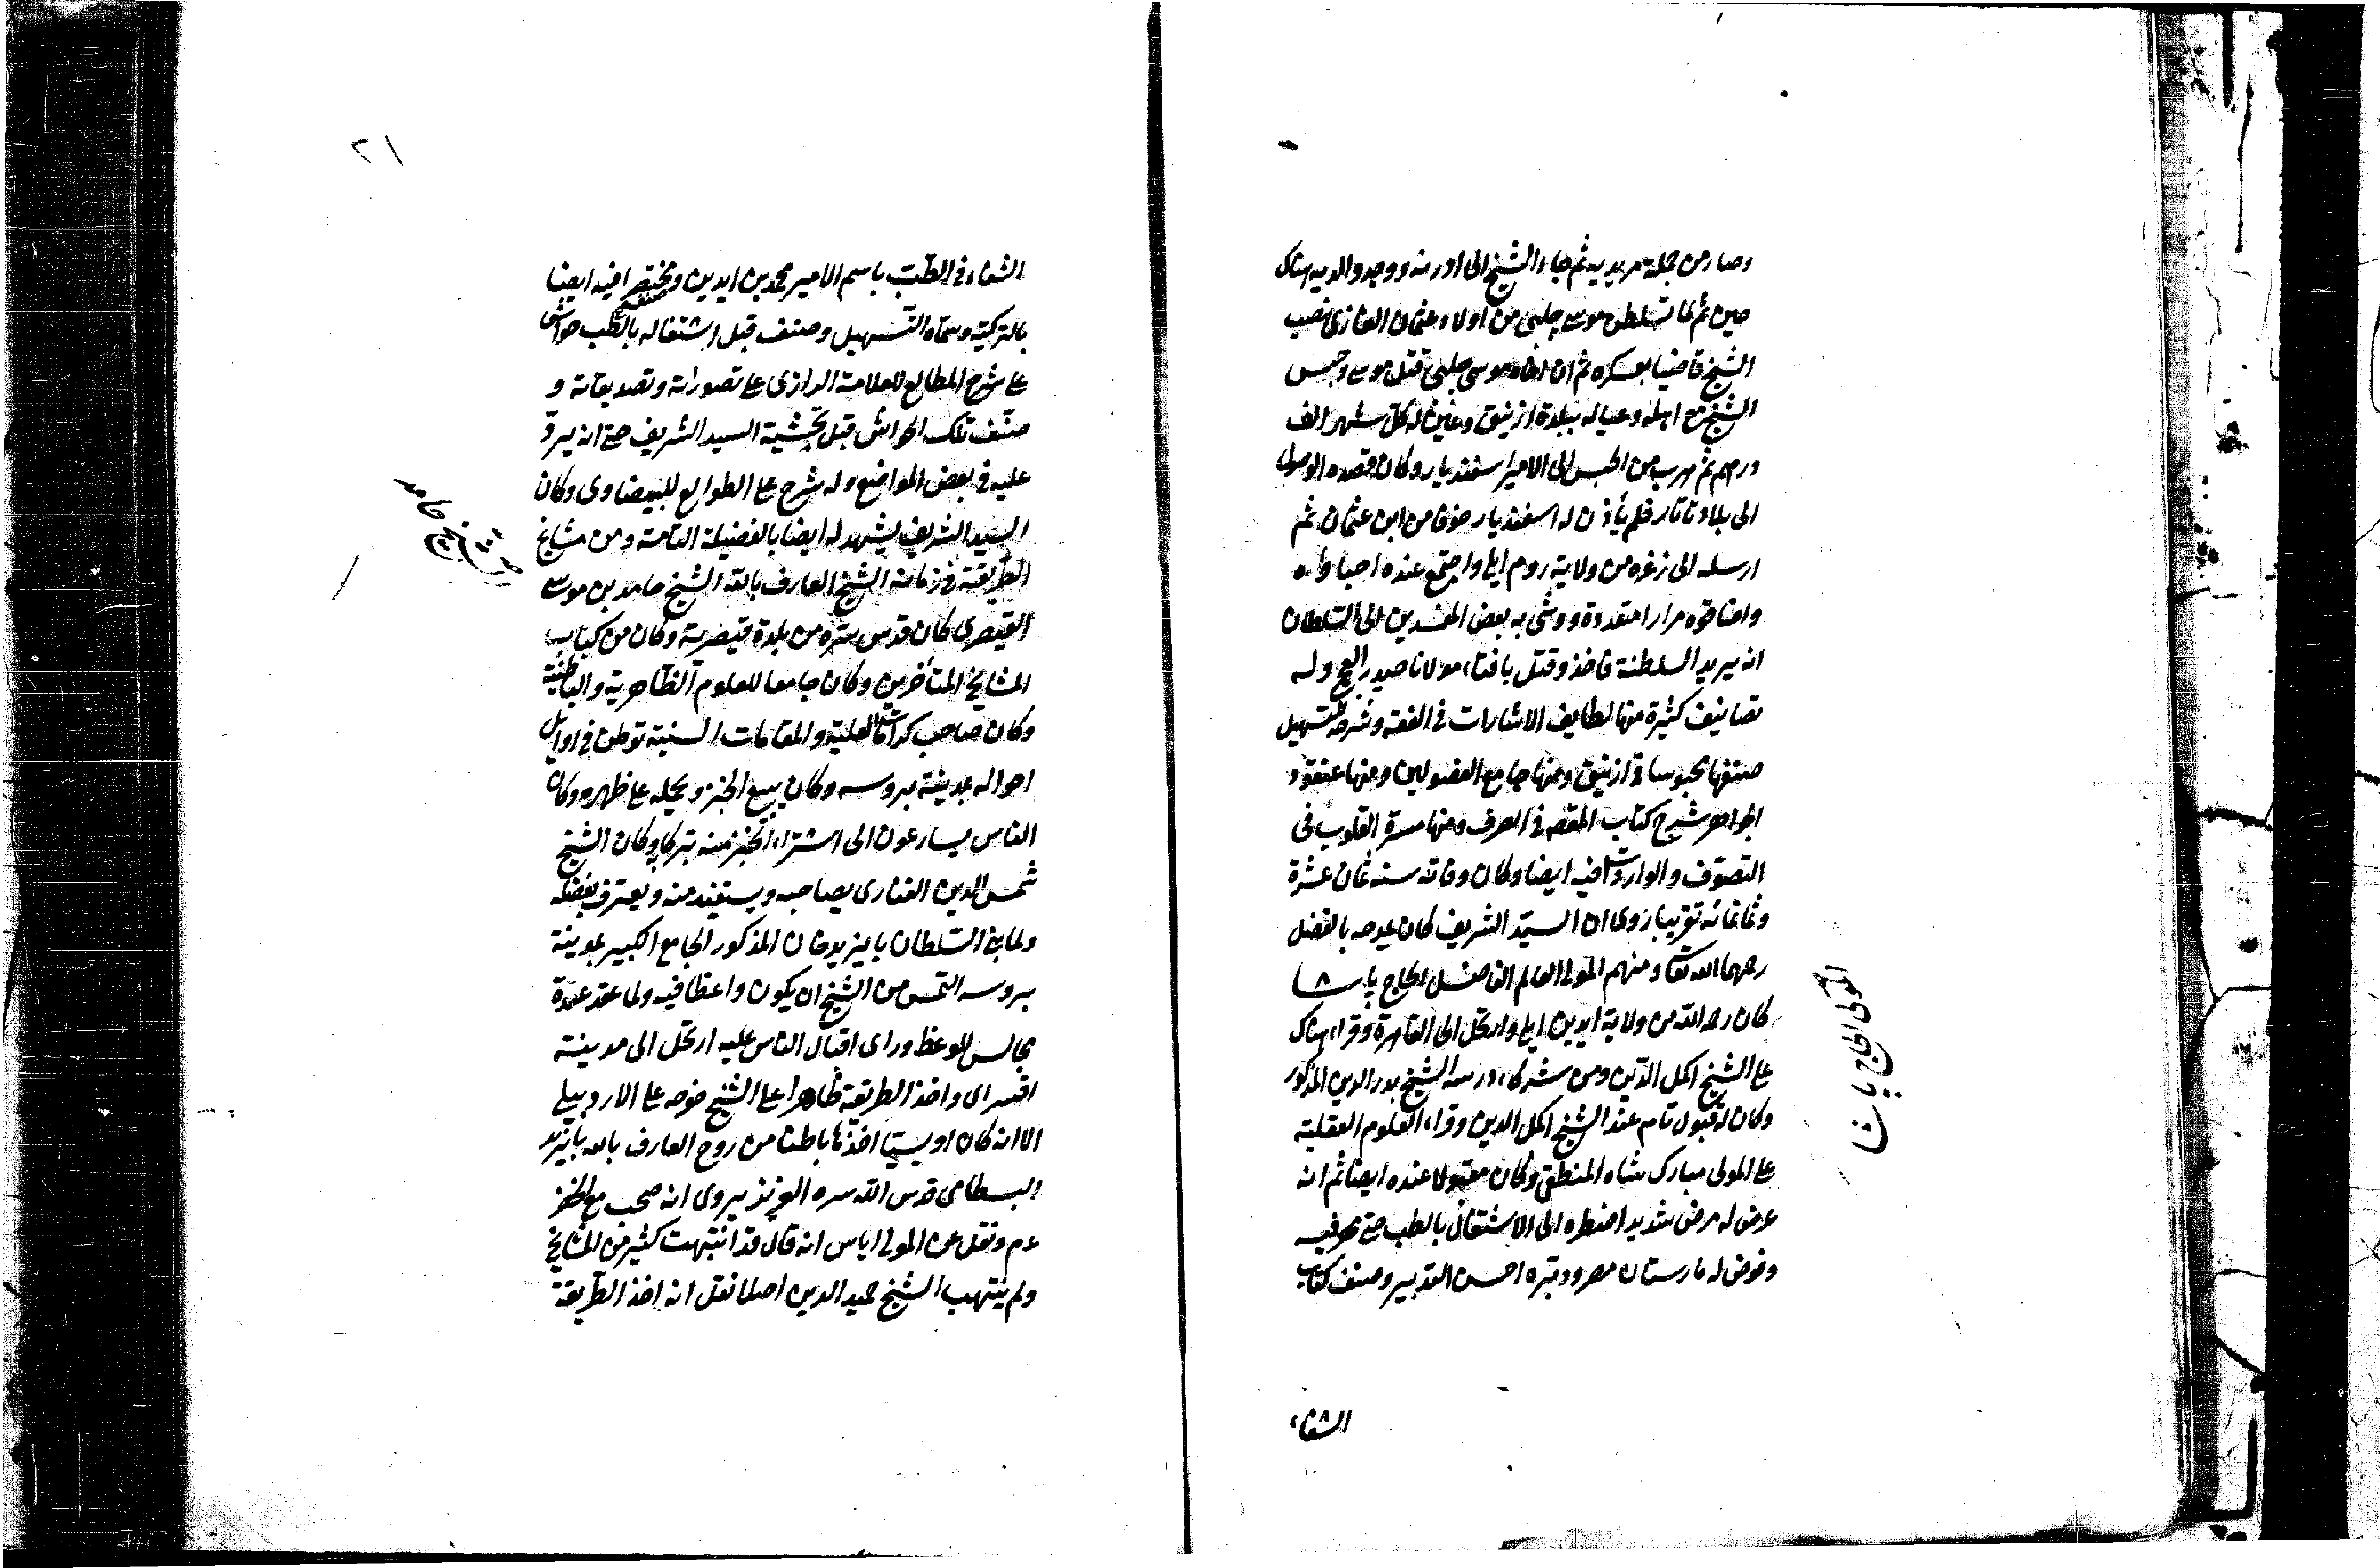 وصار من جملة مريديه ثم جاء الشيخ الى ادرنه ووجد والديه هناك
حين ثم لما تسلطن موسى چلبى من اولاد عثمان الغازى نصب
الشيخ قاضيا بعسكره ثم ان اخاه موسى چلبى قتل موسى وحبس
الشيخ مع اهله وعياله ببلدة ازنيق وعين له كل شهر الف
درهم ثم هرب من الحبس الى الامير اسفنديار وكان قصده الوصول
الى بلاد تاتار فلم يأذن له اسفنديار خوفا من ابن عثمان ثم
ارسله الى زغره من ولاية روم ايلى واجتمع عنده احباؤه
واضافوه مرارا متعددة ووشى به بعض المفسدين الى السلطان
انه يريد السلطنة فاخذ وقتل بافتاء مولانا حيدر العجمى وله
تصانيف كثيرة منها لطايف الاشارات فى الفقه وشرحه التسهيل
صنفها محبوسا فى ازنيق ومنها جامع الفصولين ومنها عنقود
الجواهر شرح كتاب المقصود فى الصرف ومنها مسرة القلوب فى
التصوف والواردات فيه ايضا وكان وفاته سنه ثمان عشرة
وثمانمائه تقريبا روى ان السيد الشريف كان يمدحه بالفضل
رحمهما الله تعالى ومنهم المولى العالم الفاضل الحاج پاشا
كان رحمه الله من ولاية ايدين ايلى وارتحل الى القاهرة وقراء هناك
على الشيخ اكمل الدين ومن شركاء درسه الشيخ بدر الدين المذكور
وكان له قبول تام عند الشيخ اكمل الدين وقراء العلوم العقلية
على المولى مبارك شاه المنطقى وكان مقبولا عنده ايضا ثم انه
عرض له مرض شديد اضطره الى الاشتغال بالطب حتى مهر فيه
وفوض له مارستان مصر ودبره احسن التدبير وصنف كتاب
الشفاء
المولى الحاج پاشا
٢١
الشفاء فى الطب باسم الامير محمد بن ايدين ومختصرا فيه ايضا
بالتركية وسماه التسهيل وصنف قبل اشتغاله بالطب حواشى
على شرح المطالع للعلامة الرازى على تصوراته وتصديقاته و
صنف تلك الحواشى قبل تحشية السيد الشريف حتى انه يرد
عليه فى بعض المواضع وله شرح على الطوالع للبيضاوى وكان
السيد الشريف يشهد له ايضا بالفضيلة التامة ومن مشايخ
الطريقة فى زمانه الشيخ العارف بالله الشيخ حامد بن موسى
القيصرى كان قدس سره من بلدة قيصرية وكان من كبار
المشايخ المتأخرين وكان جامعا للعلوم الظاهرية والباطنية
وكان صاحب كرامات العلية والمقامات السنية توطن فى اوائل
احواله بمدينة بروسه وكان يبيع الخبز ويحمله على ظهره وكان
الناس يسارعون الى اشتراء الخبز منه تبركا وكان الشيخ
شمس الدين الفنارى يصاحبه ويستفيد منه ويعترف بفضله
ولما بنى السلطان بايزيد خان المذكور الجامع الكبير بمدينة
بروسه التمس من الشيخ ان يكون واعظا فيه ولما عقد عدة
مجالس للوعظ وراى اقبال الناس عليه ارتحل الى مدينة
اقسراى واخذ الطريقة ظاهرا على الشيخ خوجه على الاردبيلى
الا انه كان اويسيا اخذها باطنا من روح العارف بالله بايزيد
البسطامى قدس الله سره العزيز يروى انه صحب مع الخضر
عم ونقل عن المولى اياس انه قال قد انتبهت كثير من المشايخ
ولم ينتهب الشيخ حميد الدين اصلا نقل انه اخذ الطريقة
الشيخ حامد